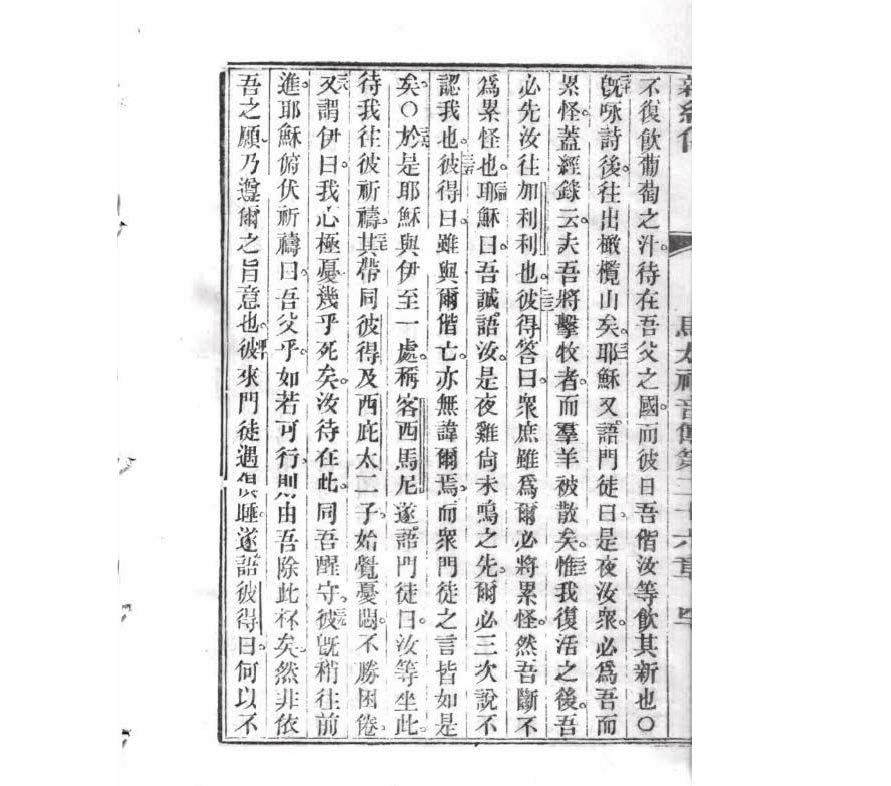 馬太福音傳第二十六章
不復飲葡萄之汁。待在吾父之國。而彼日吾偕汝等飲其新也〇
旣咏詩後。往出橄欖山矣。耶穌又語門徒曰。是夜汝衆必爲吾而
累怪。蓋經錄云。夫吾將擊牧者。而羣羊被散矣。惟我復活之後。吾
必先汝往加利利也。彼得答曰。衆庶雖爲爾必將累怪。然吾斷不
爲累怪也。耶穌曰。吾誠語汝。是夜雞尙未鳴之先。爾必三次說不
認我也。彼得曰。雖與爾偕亡。亦無諱爾焉。而衆門徒之言皆如是
矣。〇於是耶穌與伊至一處。稱客西馬尼。遂語門徒曰。汝等坐此。
待我往彼祈禱。其帶同彼得及西庇太二子。始覺憂悶。不勝困倦。
又謂伊曰。我心極憂。幾乎死矣。汝待在此。同吾醒守。彼旣稍往前
進。耶穌俯伏祈禱曰。吾父乎。如若可行。則由吾除此杯矣。然非依
吾之願。乃遵爾之旨意也。彼來門徒。遇伊睡。遂語彼得曰。何以不